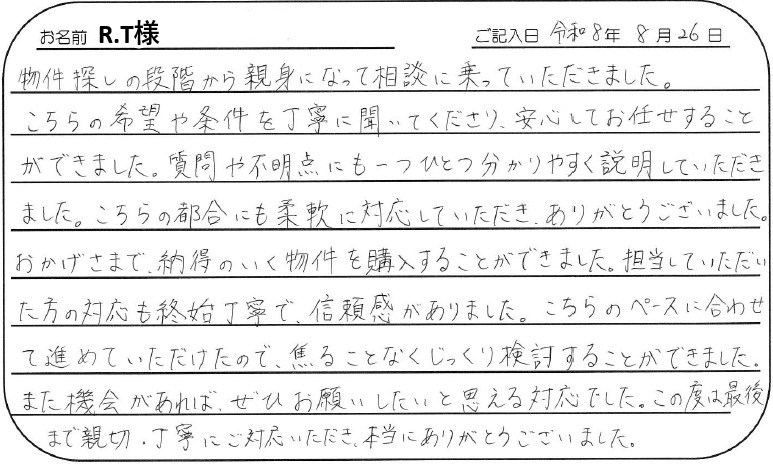 お名前 R.T様 ご記入日 令和8年 8月26日
物件探しの段階から親身になって相談に乗っていただきました。
こちらの希望や条件を丁寧に聞いてくださり、安心してお任せすること
ができました。質問や不明点にも一つひとつ分かりやすく説明していただき
ました。こちらの都合にも柔軟に対応していただき、ありがとうございました。
おかげさまで、納得のいく物件を購入することができました。担当していただい
た方の対応も終始丁寧で、信頼感がありました。こちらのペースに合わせ
て進めていただけたので、焦ることなくじっくり検討することができました。
また機会があれば、ぜひお願いしたいと思える対応でした。この度は最後
まで親切・丁寧にご対応いただき、本当にありがとうございました。